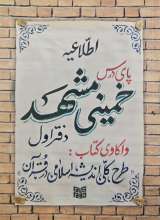 اطلاعیه
پای درس
خمینی مشهد
دفتر اول
واکاوی کتاب:
طرح کلی اندیشه اسلامی در قرآن